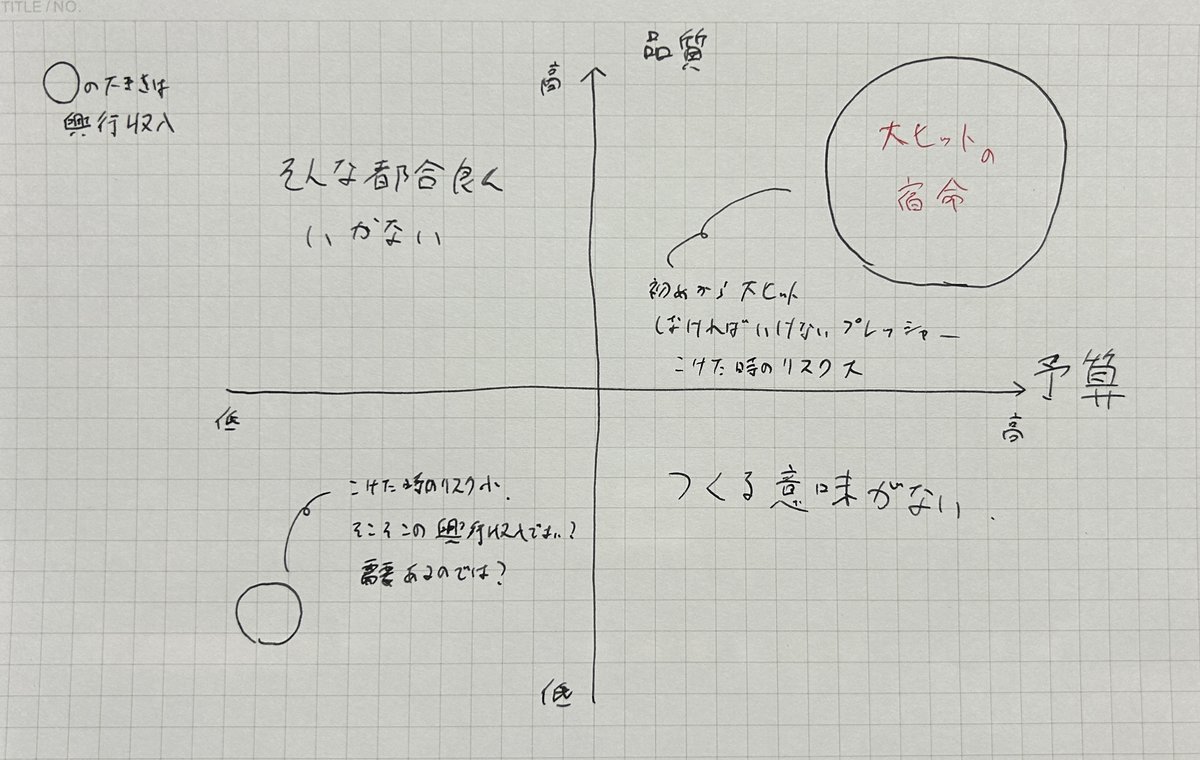 TITLE / NO.
○の大きさは
興行収入
品質
高
そんな都合良く
いかない
大ヒットの
宿命
初めから大ヒット
しなければいけないプレッシャー
こけた時のリスク大
予算
低
高
こけた時のリスク小.
そこそこの興行収入でよい?
需要あるのでは?
つくる意味がない.
低